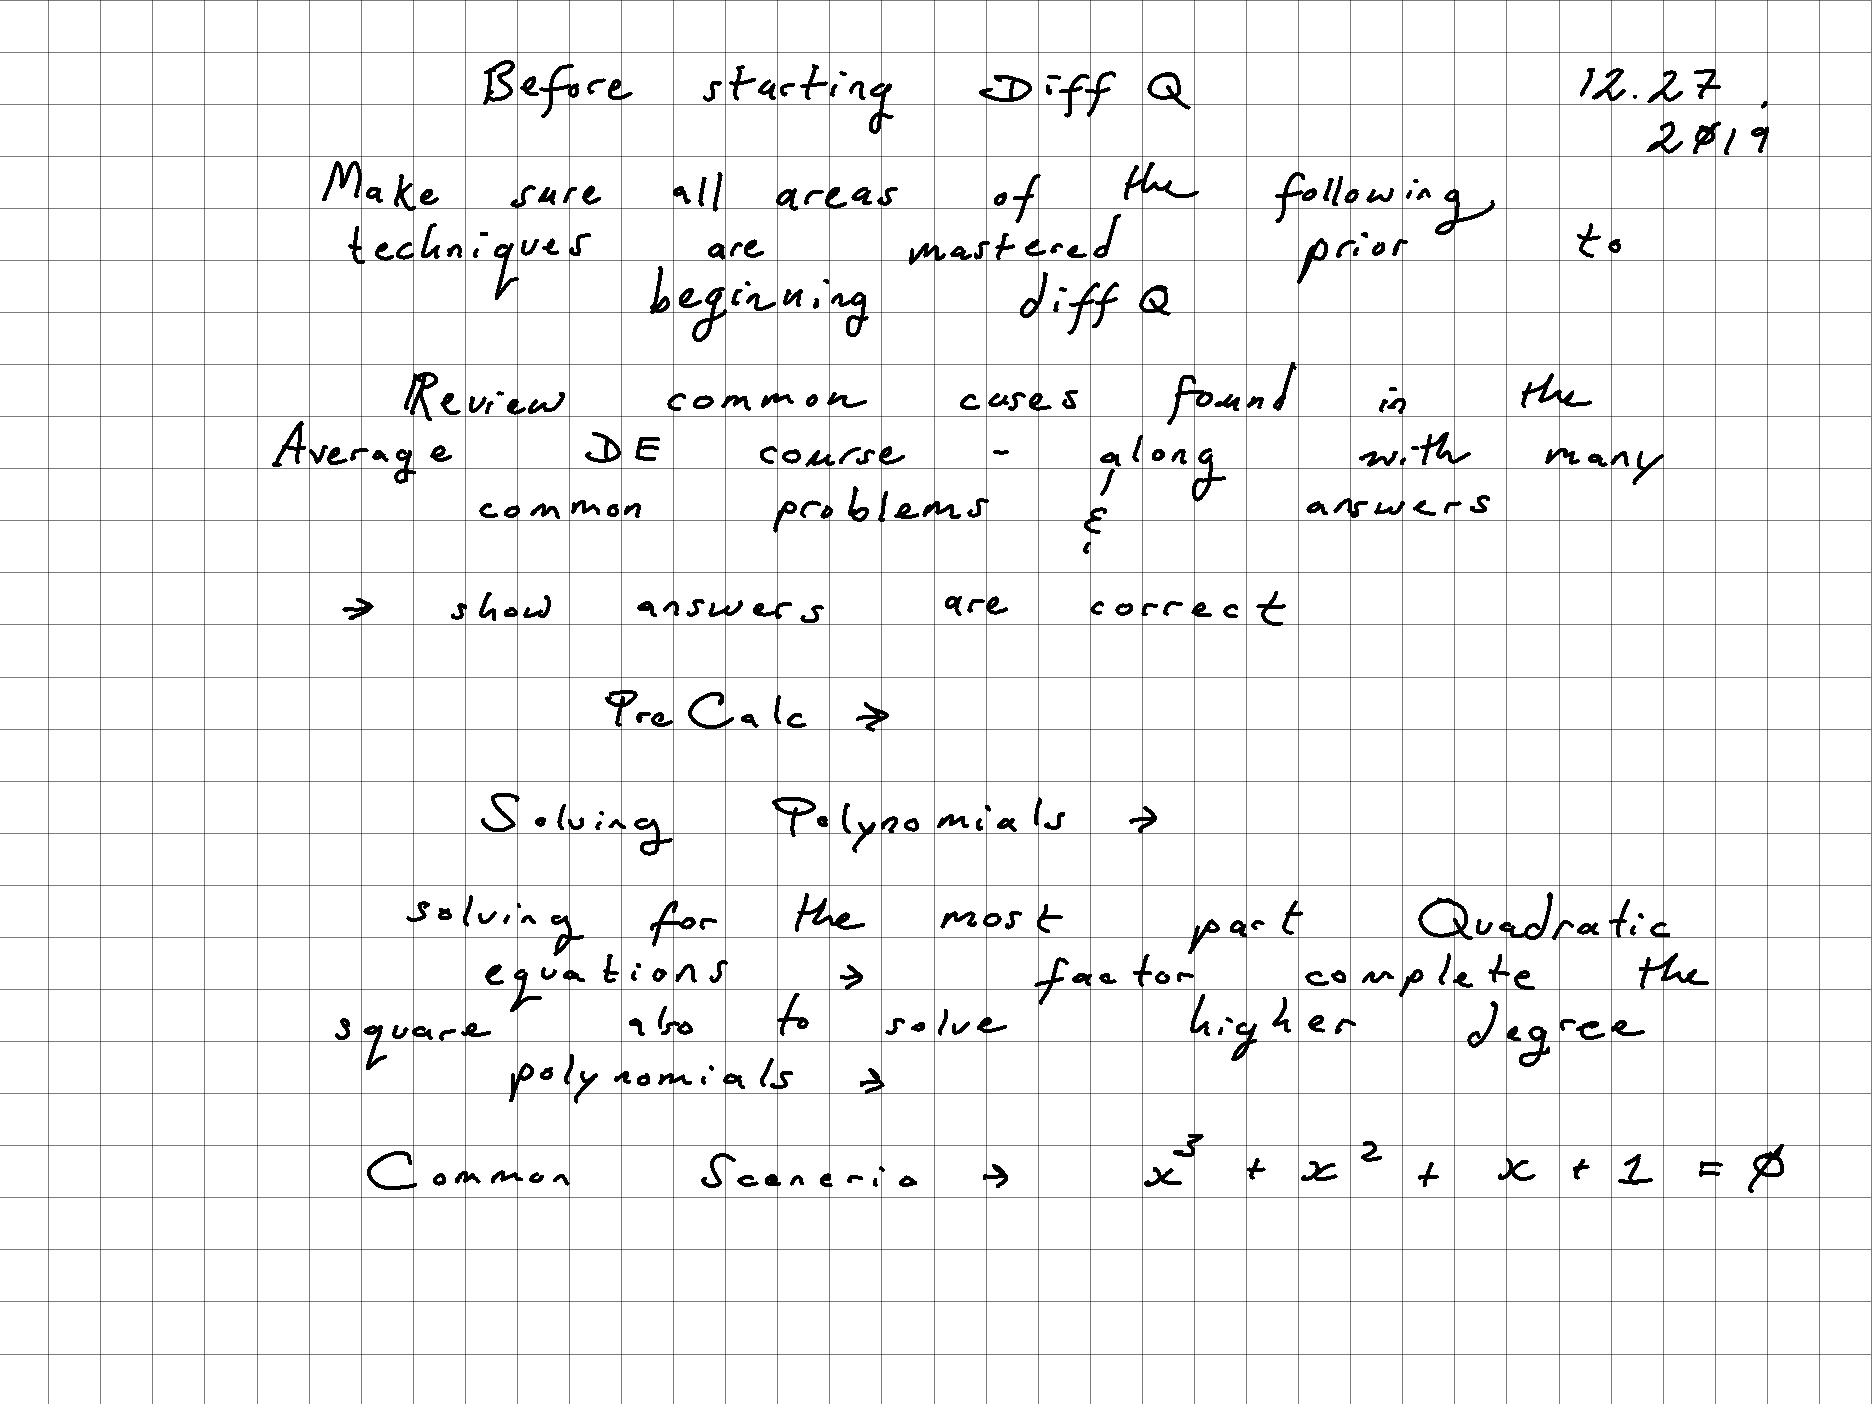 Before starting Diff Q 12.27.
2019
Make sure all areas of the following
techniques are mastered prior to
beginning diff Q
Review common cases found in the
Average DE course - along with many
common problems & answers
→ show answers are correct
PreCalc →
Solving Polynomials →
solving for the most part Quadratic
equations → factor complete the
square also to solve higher degree
polynomials →
Common Sceneria → x³ + x² + x + 1 = 0